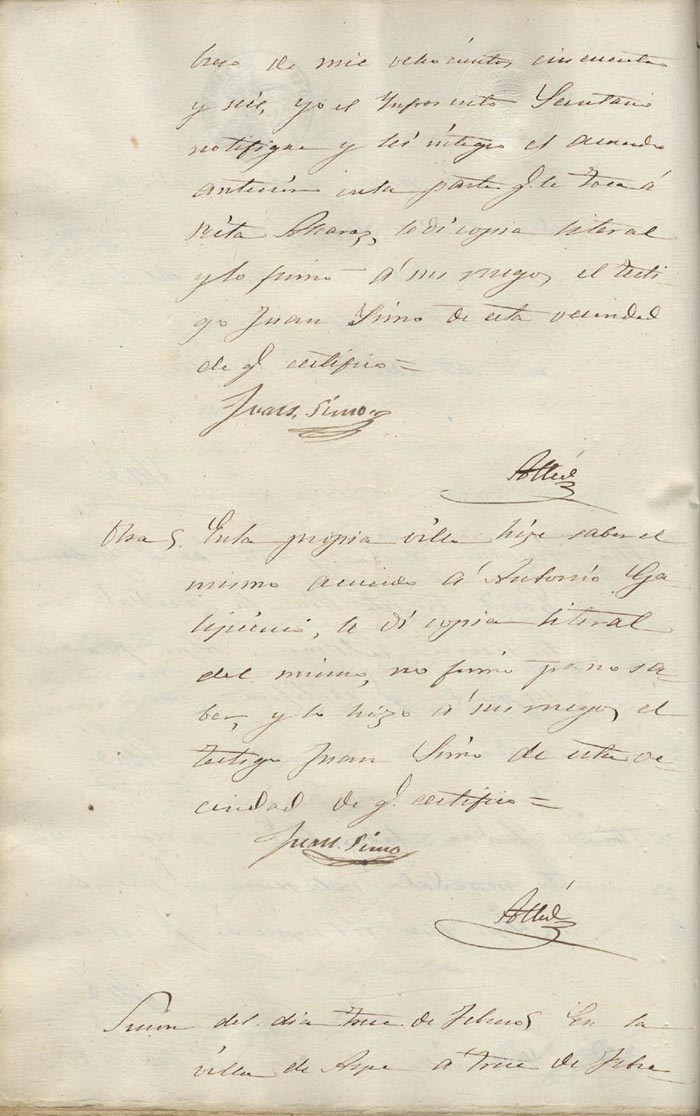 brero de mil ochocientos cincuenta
y seis, yo el infrascrito Secretario
notifique y leí integro el acuerdo
anterior en la parte q.e le toca á
Rita Alcaraz, le dí copia literal
y lo firmó á sus ruegos el testi
go Juan Simo de esta vecindad
de q.e certifico =
Juan Simo
Otra. En la propia villa hize saber el
mismo acuerdo á Antonio Ga
le dí copia literal
del mismo, no firmó p.r no sa
ber, y lo hizo á sus ruegos el
testigo Juan Simo de esta ve
cindad de q.e certifico =
Juan Simo
Sesion del dia trece de Febrero. En la
villa de Aspe á trece de Febre